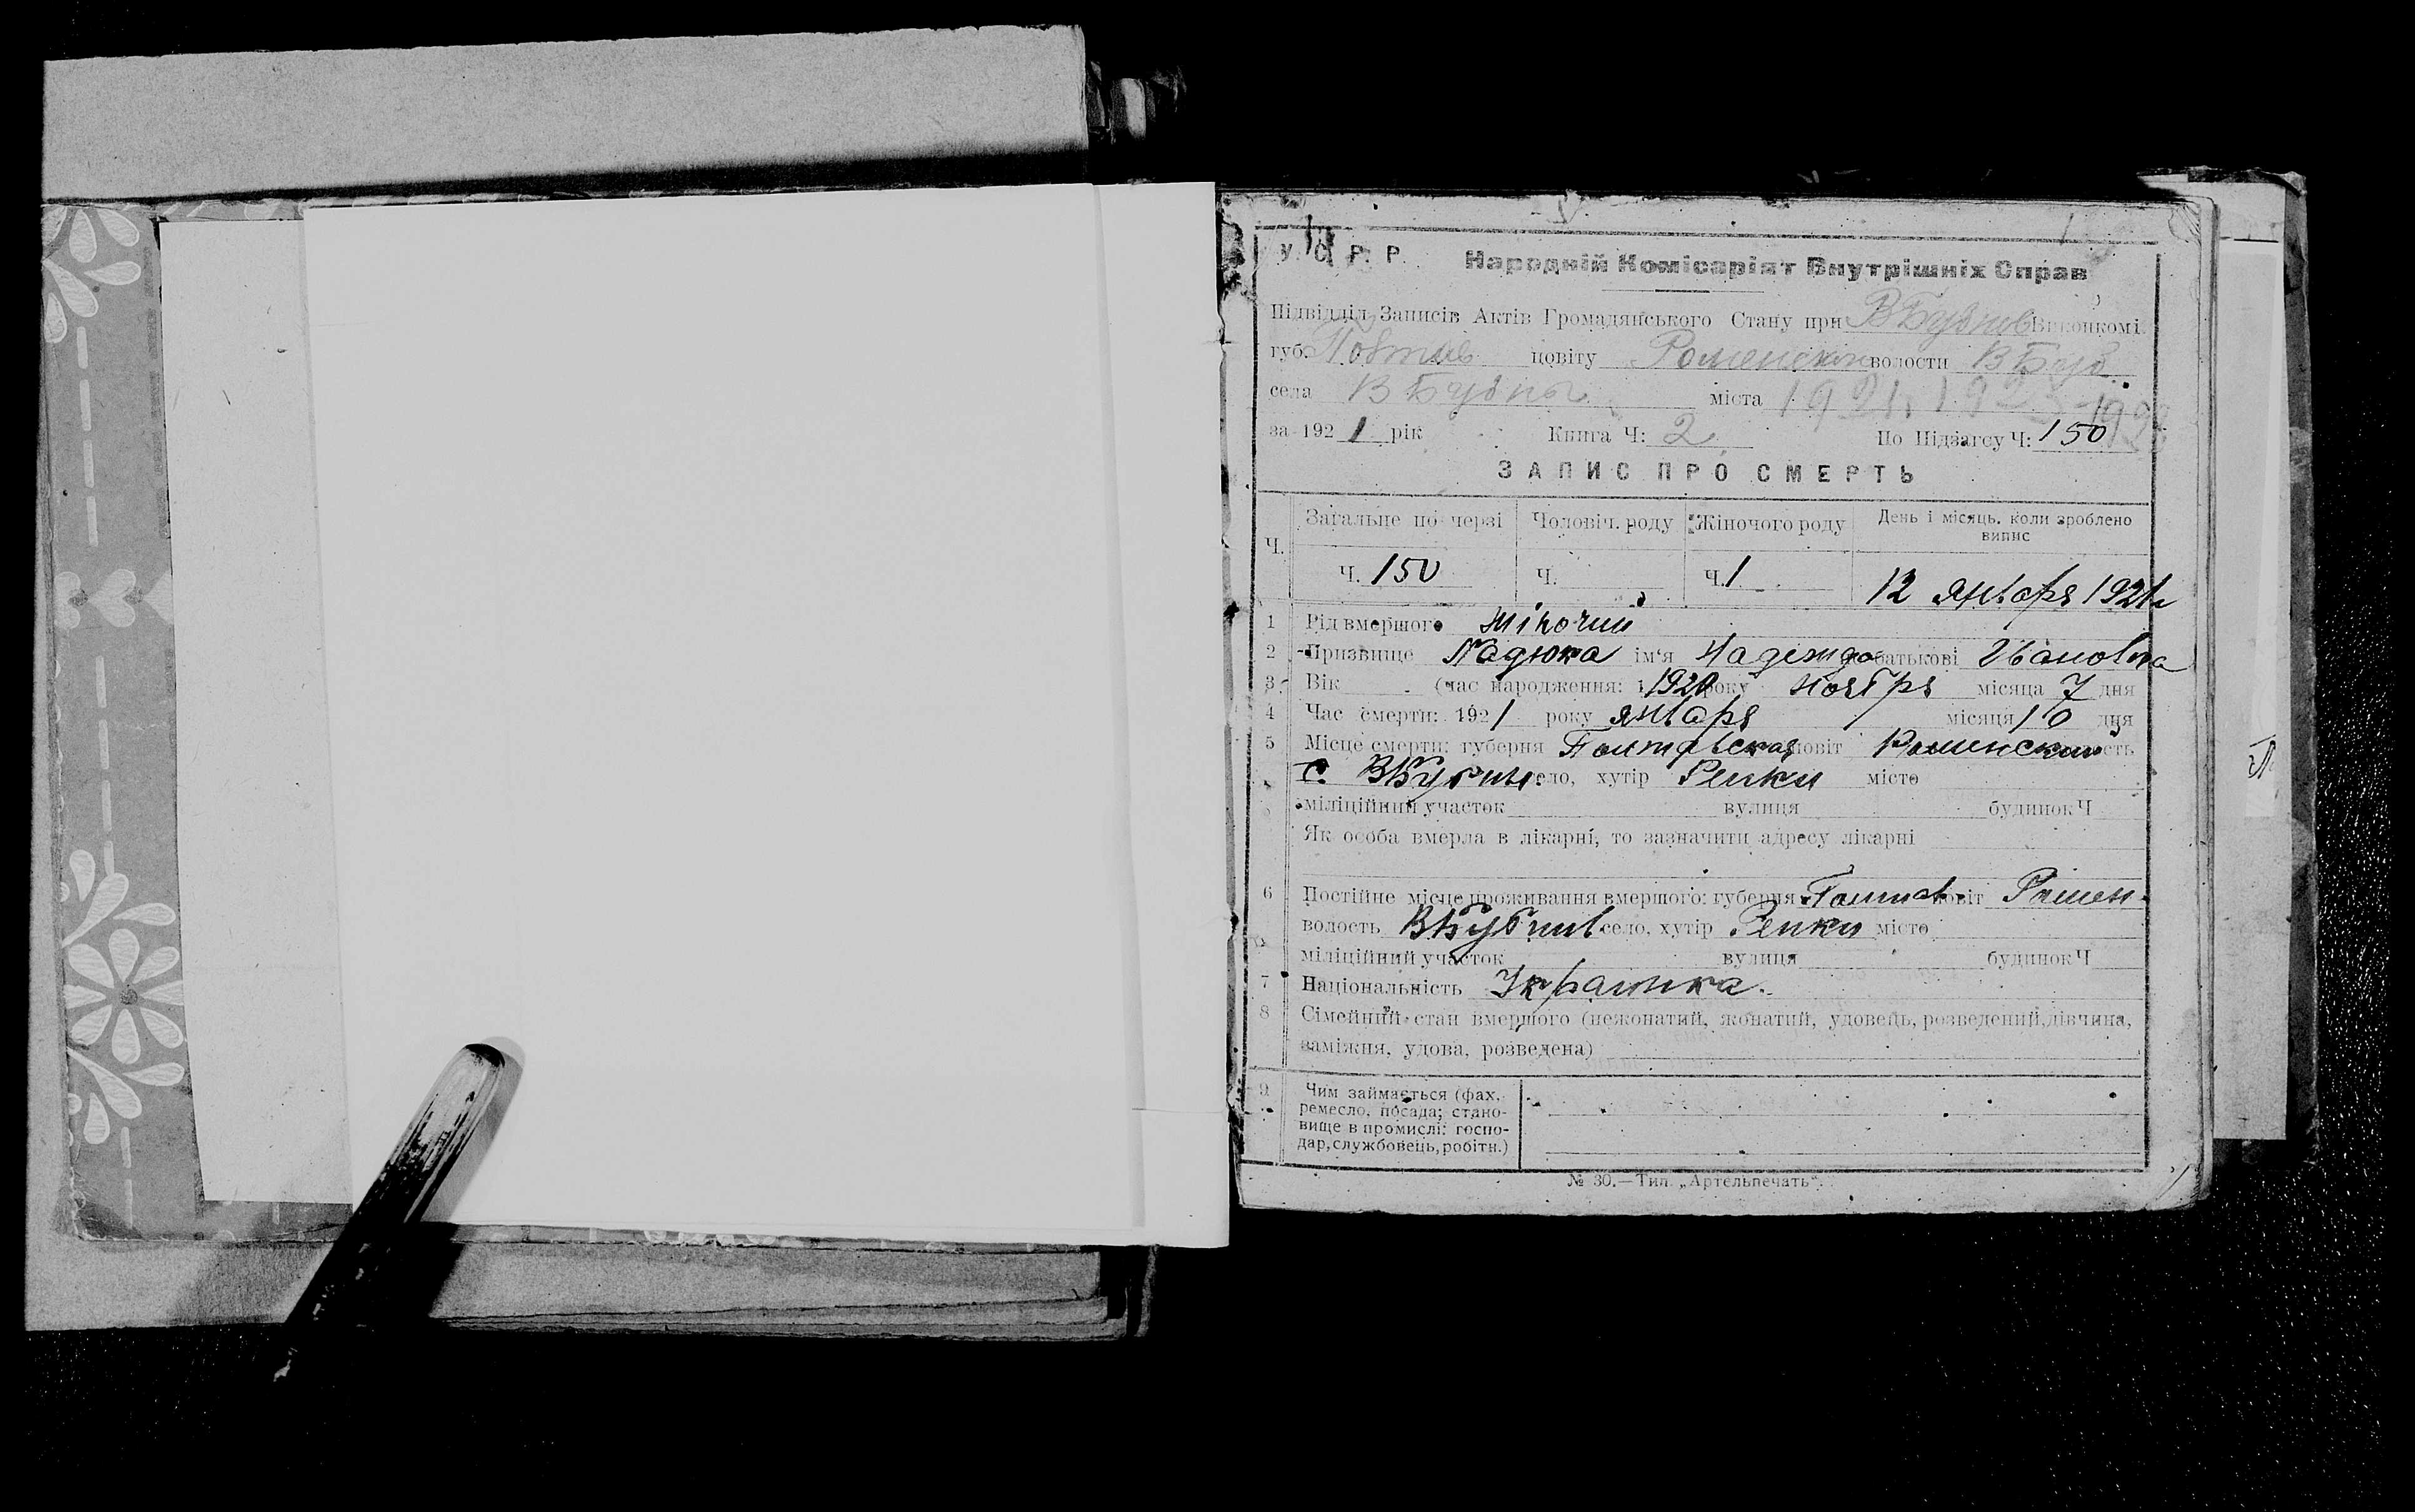 У. С. Р. Р. Народній Комісаріят Внутрішніх Справ
Підвідділ Записів Актів Громадянського Стану при В Бубнів Виконкомі
губ. повіту Роменскій волости В Буб
села В Бубны міста 1921, 1923
за 1921 рік Книга Ч: 2 По Підзагсу Ч: 150
ЗАПИС ПРО СМЕРТЬ
Ч. Загальне по черзі Чоловіч. роду Жіночого роду День і місяць, коли зроблено випис
Ч. 150 Ч. Ч. 1 12 января 1921 г
1 Рід вмершого жіночий
2 Призвище Надежда ім'я по батькові Ивановна
3 Вік (час народження: 1920 року ноября місяца 7 дня
4 Час смерти: 1921 року января місяця 10 дня
5 Місце смерти: губерня Полтавская повіт Роменский
с. ВБубны. село, хутір Репки місто
міліційний участок вулиця будинок Ч
Як особа вмерла в лікарні, то зазначити адресу лікарні
6 Постійне місце проживання вмершого: губерня Полтав. повіт Ромен.
волость ВБубнив село, хутір Репки місто
міліційний участок вулиця будинок Ч
7 Національність Украинка.
8 Сімейний стан вмершого (нежонатий, жонатий, удовець, розведений, дівчина,
заміжня, удова, розведена)
9 Чим займається (фах,
ремесло, посада; стано-
вище в промислі: госпо-
дар, службовець, робітн.)
№ 30.—Тип. „Артельпечать“.